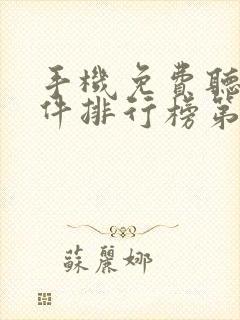 手機免費聽
件排行榜第
蘇麗娜